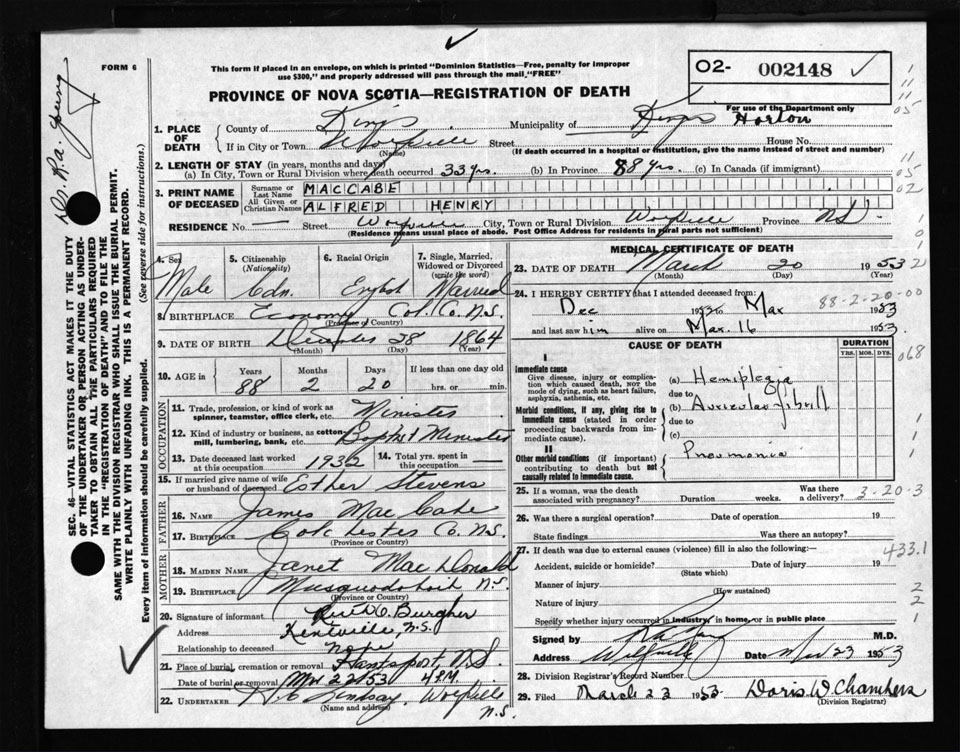 FORM 6
This form if placed in an envelope, on which is printed "Dominion Statistics—Free, penalty for improper use $300," and properly addressed will pass through the mail, "FREE"
O2- 002148
For use of the Department only
PROVINCE OF NOVA SCOTIA—REGISTRATION OF DEATH
1. PLACE OF DEATH
County of Kings Municipality of Kings Horton
If in City or Town Wolfville Street House No.
(Name) (If death occurred in a hospital or institution, give the name instead of street and number)
2. LENGTH OF STAY (in years, months and days)
(a) In City, Town or Rural Division where death occurred 33 yrs. (b) In Province 88 yrs. (c) In Canada (if immigrant)
3. PRINT NAME OF DECEASED
Surname or Last Name MACCABE
All Given or Christian Names ALFRED HENRY
RESIDENCE No. — Street Wolfville City, Town or Rural Division Wolfville Province N.S.
(Residence means usual place of abode. Post Office Address for residents in rural parts not sufficient)
4. Sex Male
5. Citizenship (Nationality) Cdn.
6. Racial Origin English
7. Single, Married, Widowed or Divorced (write the word) Married
8. BIRTHPLACE Economy Col. Co. N.S.
(Province or Country)
9. DATE OF BIRTH December 28 1864
(Month) (Day) (Year)
10. AGE in Years 88 Months 2 Days 20 If less than one day old hrs. or min.
OCCUPATION
11. Trade, profession, or kind of work as spinner, teamster, office clerk, etc. Minister
12. Kind of industry or business, as cotton-mill, lumbering, bank, etc. Baptist Minister
13. Date deceased last worked at this occupation 1932
14. Total yrs. spent in this occupation
15. If married give name of wife or husband of deceased Esther Stevens
FATHER
16. NAME James MacCabe
17. BIRTHPLACE Colchester Co. N.S.
(Province or Country)
MOTHER
18. MAIDEN NAME Janet MacDonald
19. BIRTHPLACE Musquodoboit N.S.
(Province or Country)
20. Signature of informant Burgher
Address Kentville, N.S.
Relationship to deceased none
21. Place of burial, cremation or removal Hantsport, N.S.
Date of burial or removal Mar 22/53 4 P.M.
22. UNDERTAKER Lindsay, Wolfville N.S.
MEDICAL CERTIFICATE OF DEATH
23. DATE OF DEATH March 20 1953
(Month) (Day) (Year)
24. I HEREBY CERTIFY that I attended deceased from:
Dec to Mar 1953
and last saw him alive on Mar. 16 1953.
88-2-20-00
CAUSE OF DEATH
DURATION
YRS. MOS. DYS.
068
I
Immediate cause
Give disease, injury or complication which caused death, NOT the mode of dying, such as heart failure, asphyxia, asthenia, etc.
(a) Hemiplegia
due to
Morbid conditions, if any, giving rise to immediate cause (stated in order proceeding backwards from immediate cause).
(b) Auricular fibrill
due to
(c)
II
Other morbid conditions (if important) contributing to death but not causally related to immediate cause.
Pneumonia
25. If a woman, was the death associated with pregnancy? Duration weeks. Was there a delivery?
3-20-3
26. Was there a surgical operation? Date of operation 19
State findings Was there an autopsy?
27. If death was due to external causes (violence) fill in also the following:—
433.1
Accident, suicide or homicide? Date of injury 19
(State which)
Manner of injury
(How sustained)
Nature of injury
Specify whether injury occurred in industry, in home, or in public place
Signed by M.D.
Address Wolfville Date Mar 23 1953
28. Division Registrar's Record Number
29. Filed March 23 1953 Doris W. Chambers
(Division Registrar)
SEC. 46—VITAL STATISTICS ACT MAKES IT THE DUTY OF THE UNDERTAKER OR PERSON ACTING AS UNDERTAKER TO OBTAIN ALL THE PARTICULARS REQUIRED IN THE "REGISTRATION OF DEATH" AND TO FILE THE SAME WITH THE DIVISION REGISTRAR WHO SHALL ISSUE THE BURIAL PERMIT.
WRITE PLAINLY WITH UNFADING INK. THIS IS A PERMANENT RECORD.
Every item of information should be carefully supplied. (See reverse side for instructions.)